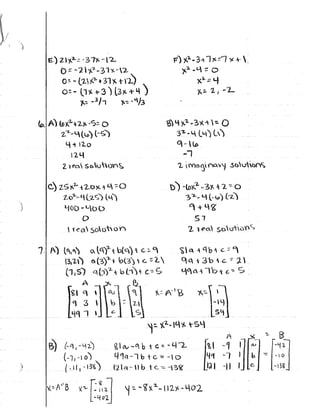 E) 21x² = -37x -12
0 = -21x² -37x -12
0 = -(21x² + 37x + 12)
0 = -(7x+3)(3x+4)
x = -3/7 x = -4/3
F) x² -3 + 7x = 7x + 1
x² -4 = 0
x² = 4
x = 2, -2
6. A) 6x² + 2x -5 = 0
2² -4(6)(-5)
4 + 120
124
2 real solutions
B) 4x² -3x + 1 = 0
3² -4(4)(1)
9 - 16
-7
2 imaginary solutions
C) 25x² + 20x + 4 = 0
20² -4(25)(4)
400 -400
0
1 real solution
D) -6x² -3x + 2 = 0
3² -4(-6)(2)
9 + 48
57
2 real solutions
7 A) (9,9) a(9)² + b(9) + c = 9 81a + 9b + c = 9
(3,21) a(3)² + b(3) + c = 21 9a + 3b + c = 21
(7,5) a(7)² + b(7) + c = 5 49a + 7b + c = 5
A X B
[81 9 1] [a] = [9] x = A⁻¹B x = [1]
[9 3 1] [b] [21] [-14]
[49 7 1] [c] [5] [54]
y = x² -14x + 54
B) (-9, -42) 81a -9b + c = -42
(-7, -10) 49a -7b + c = -10
(-11, -138) 121a -11b + c = -138
A X = B
[81 -9 1] [a] [-42]
[49 -7 1] [b] = [-10]
[121 -11 1] [c] [-138]
x = A⁻¹B x = [-8]
[-112]
[-402]
y = -8x² -112x -402